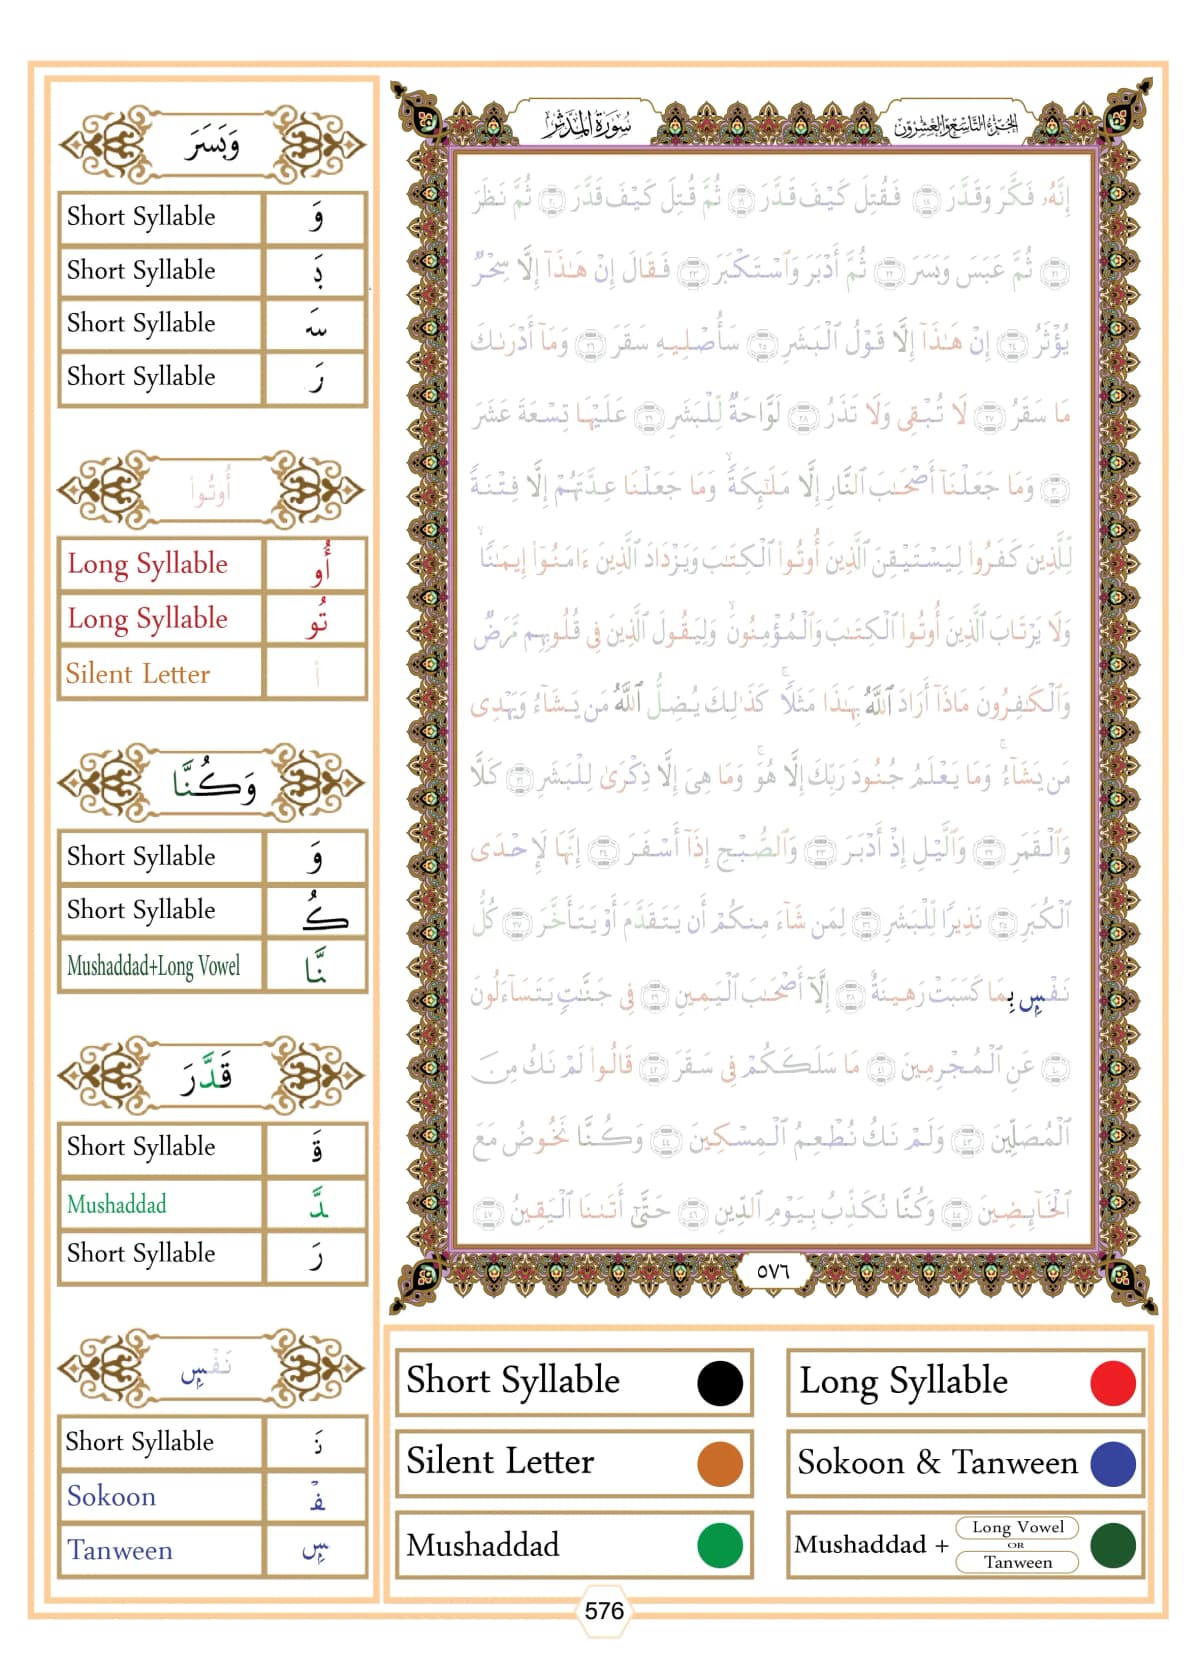 سُورَةُ الْمُدَّثِّر
الجُزْءُ التَّاسِعُ وَالْعِشْرُونَ
وَبَسَرَ
Short Syllable وَ
Short Syllable بَ
Short Syllable سَ
Short Syllable رَ
أُوتُوا۟
Long Syllable أُو
Long Syllable تُو
Silent Letter ا۟
وَكُنَّا
Short Syllable وَ
Short Syllable كُ
Mushaddad+Long Vowel نَّا
قَدَّرَ
Short Syllable قَ
Mushaddad دَّ
Short Syllable رَ
نَفْسٍ
Short Syllable نَ
Sokoon فْ
Tanween سٍ
إِنَّهُۥ فَكَّرَ وَقَدَّرَ ١٨ فَقُتِلَ كَيْفَ قَدَّرَ ١٩ ثُمَّ قُتِلَ كَيْفَ قَدَّرَ ٢٠ ثُمَّ نَظَرَ
٢١ ثُمَّ عَبَسَ وَبَسَرَ ٢٢ ثُمَّ أَدْبَرَ وَٱسْتَكْبَرَ ٢٣ فَقَالَ إِنْ هَـٰذَآ إِلَّا سِحْرٌ
يُؤْثَرُ ٢٤ إِنْ هَـٰذَآ إِلَّا قَوْلُ ٱلْبَشَرِ ٢٥ سَأُصْلِيهِ سَقَرَ ٢٦ وَمَآ أَدْرَىٰكَ
مَا سَقَرُ ٢٧ لَا تُبْقِى وَلَا تَذَرُ ٢٨ لَوَّاحَةٌ لِّلْبَشَرِ ٢٩ عَلَيْهَا تِسْعَةَ عَشَرَ
٣٠ وَمَا جَعَلْنَآ أَصْحَـٰبَ ٱلنَّارِ إِلَّا مَلَـٰٓئِكَةً ۙ وَمَا جَعَلْنَا عِدَّتَهُمْ إِلَّا فِتْنَةً
لِّلَّذِينَ كَفَرُوا۟ لِيَسْتَيْقِنَ ٱلَّذِينَ أُوتُوا۟ ٱلْكِتَـٰبَ وَيَزْدَادَ ٱلَّذِينَ ءَامَنُوٓا۟ إِيمَـٰنًا ۙ
وَلَا يَرْتَابَ ٱلَّذِينَ أُوتُوا۟ ٱلْكِتَـٰبَ وَٱلْمُؤْمِنُونَ ۙ وَلِيَقُولَ ٱلَّذِينَ فِى قُلُوبِهِم مَّرَضٌ
وَٱلْكَـٰفِرُونَ مَاذَآ أَرَادَ ٱللَّهُ بِهَـٰذَا مَثَلًا ۚ كَذَٰلِكَ يُضِلُّ ٱللَّهُ مَن يَشَآءُ وَيَهْدِى
مَن يَشَآءُ ۚ وَمَا يَعْلَمُ جُنُودَ رَبِّكَ إِلَّا هُوَ ۚ وَمَا هِىَ إِلَّا ذِكْرَىٰ لِلْبَشَرِ ٣١ كَلَّا
وَٱلْقَمَرِ ٣٢ وَٱلَّيْلِ إِذْ أَدْبَرَ ٣٣ وَٱلصُّبْحِ إِذَآ أَسْفَرَ ٣٤ إِنَّهَا لَإِحْدَى
ٱلْكُبَرِ ٣٥ نَذِيرًا لِّلْبَشَرِ ٣٦ لِمَن شَآءَ مِنكُمْ أَن يَتَقَدَّمَ أَوْ يَتَأَخَّرَ ٣٧ كُلُّ
نَفْسٍۭ بِمَا كَسَبَتْ رَهِينَةٌ ٣٨ إِلَّآ أَصْحَـٰبَ ٱلْيَمِينِ ٣٩ فِى جَنَّـٰتٍ يَتَسَآءَلُونَ
٤٠ عَنِ ٱلْمُجْرِمِينَ ٤١ مَا سَلَكَكُمْ فِى سَقَرَ ٤٢ قَالُوا۟ لَمْ نَكُ مِنَ
ٱلْمُصَلِّينَ ٤٣ وَلَمْ نَكُ نُطْعِمُ ٱلْمِسْكِينَ ٤٤ وَكُنَّا نَخُوضُ مَعَ
ٱلْخَآئِضِينَ ٤٥ وَكُنَّا نُكَذِّبُ بِيَوْمِ ٱلدِّينِ ٤٦ حَتَّىٰٓ أَتَىٰنَا ٱلْيَقِينُ ٤٧
٥٧٦
Short Syllable
Long Syllable
Silent Letter
Sokoon & Tanween
Mushaddad
Mushaddad + Long Vowel OR Tanween
576